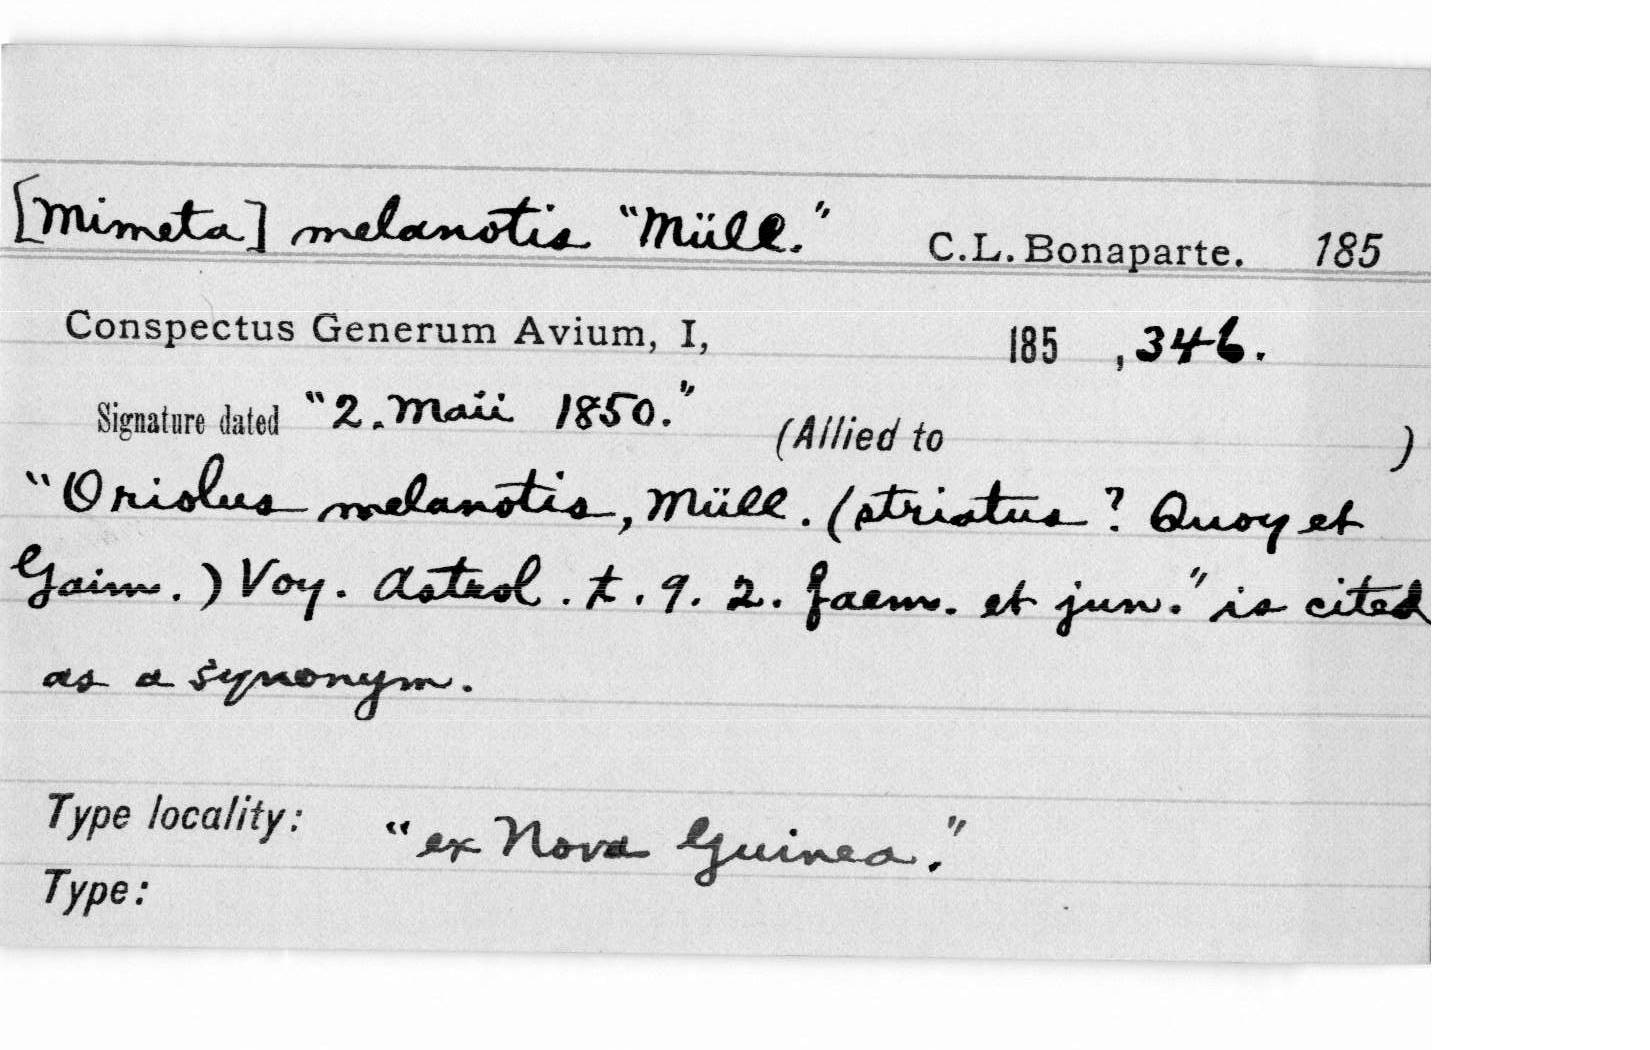 [Mimeta] melanotis "Müll." C.L. Bonaparte. 185
Conspectus Generum Avium, I, 185 , 346.
Signature dated "2. Maii 1850." (Allied to )
"Oriolus melanotis, Müll. (striatus? Quoy et
Gaim.) Voy. Astrol. t. 9. 2. faem. et jun." is cited
as a synonym.
Type locality: "ex Nova Guinea."
Type: